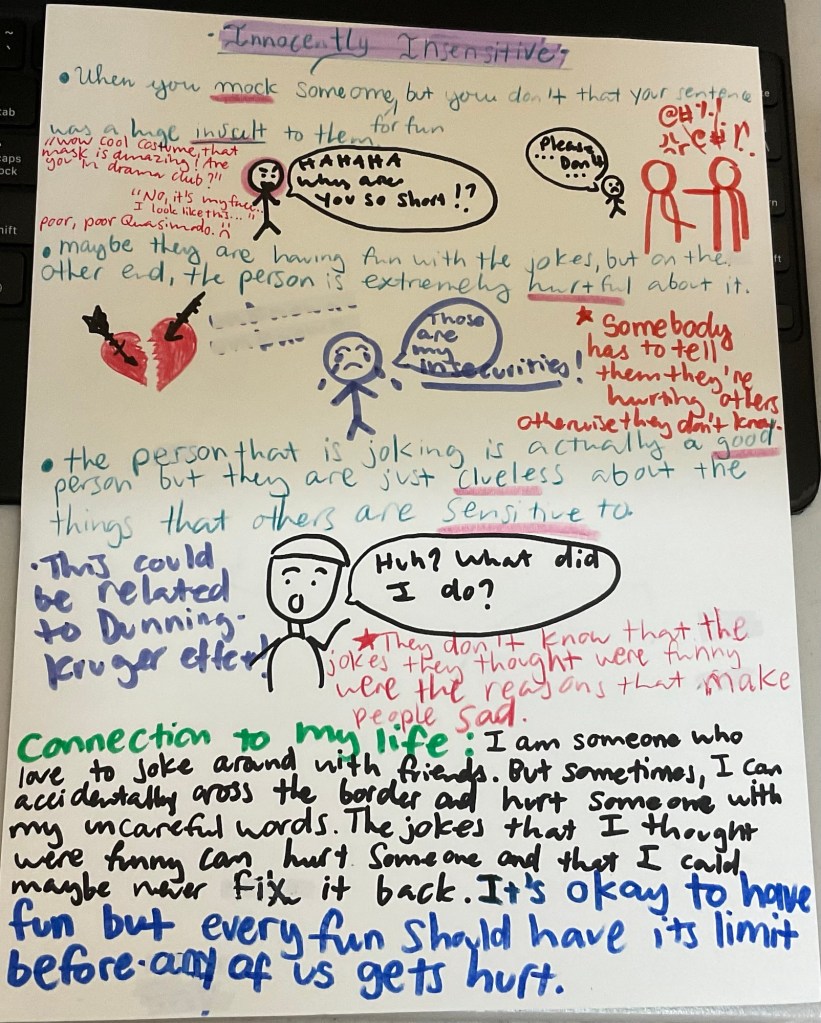 • Innocently Insensitive:
• When you mock someone, but you don't that your sentence
was a huge insult to them for fun
"wow cool costume, that
mask is amazing! Are
you in drama club?"
"No, it's my face...
I look like this..."
poor, poor Quasimodo. :(
HAHAHA
Why are
you so short!?
Please
... Don't
...
@#%!
• maybe they are having fun with the jokes, but on the
other end, the person is extremely hurtful about it.
Those
are
my
insecurities!
★ Somebody
has to tell
them they're
hurting others
otherwise they don't know.
• the person that is joking is actually a good
person but they are just clueless about the
things that others are sensitive to.
• This could
be related
to Dunning-
Kruger effect!
Huh? What did
I do?
★ They don't know that the
jokes they thought were funny
were the reasons that make
people sad.
Connection to my life: I am someone who
love to joke around with friends. But sometimes, I can
accidentally cross the border and hurt someone with
my uncareful words. The jokes that I thought
were funny can hurt someone and that I could
maybe never fix it back. It's okay to have
fun but every fun should have its limit
before any of us gets hurt.